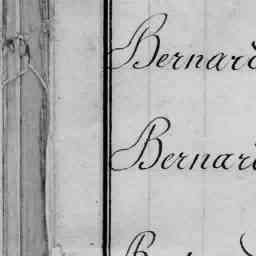 Bernard
Bernard